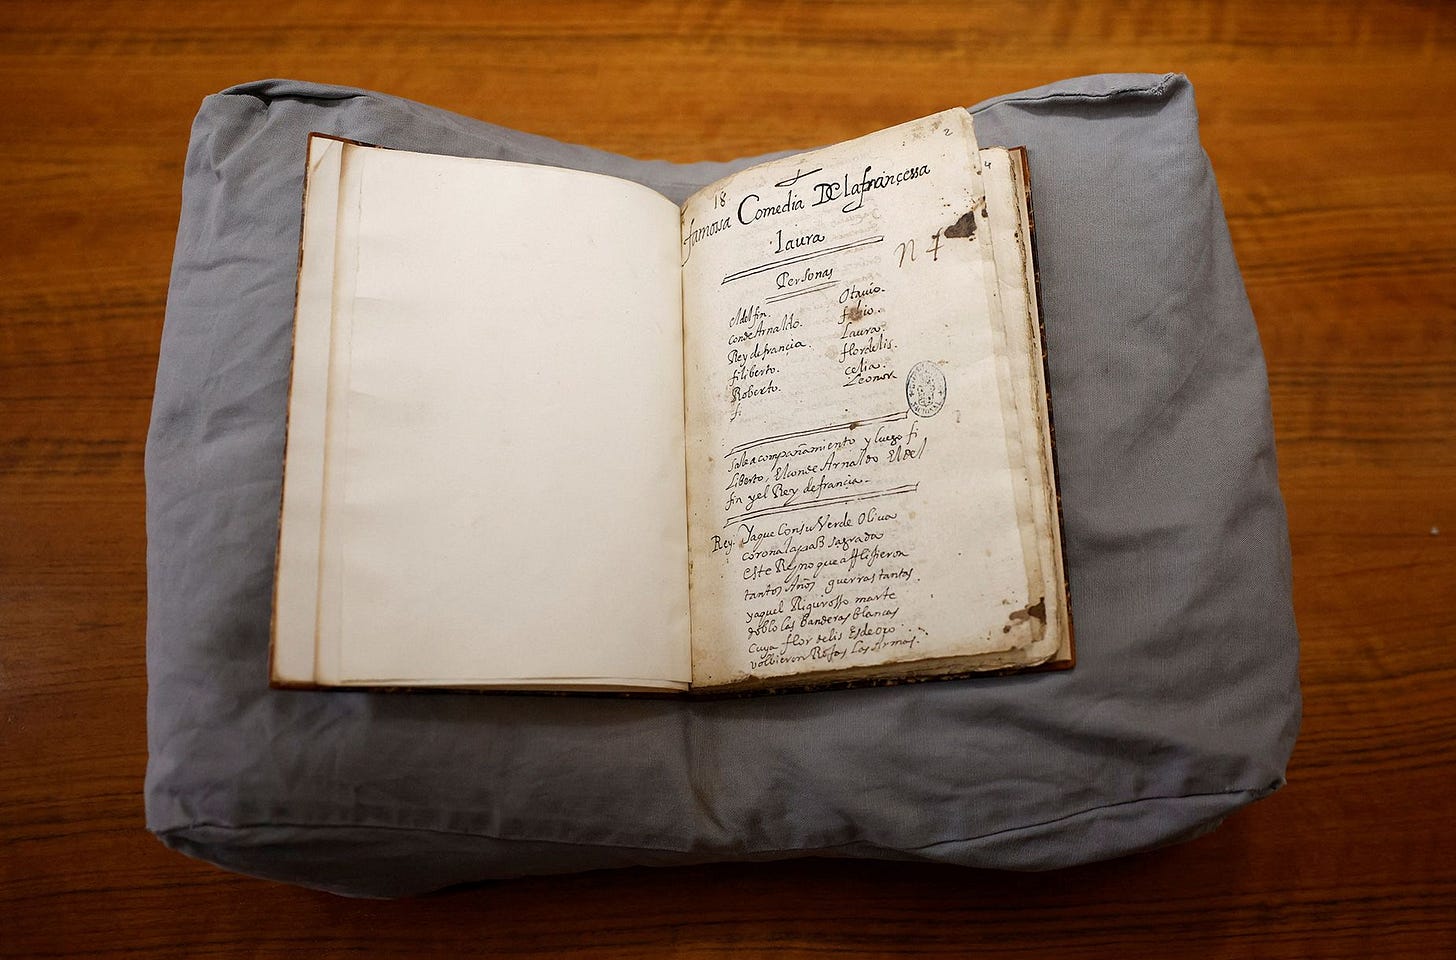 2
4
18
famossa Comedia De lafrançessa
laura
N 4
Personas
el delfin.
conde Arnaldo.
Rey defrançia.
filiberto.
Roberto.
f.
Otavio.
fabio.
Laura.
flordelis.
celia.
Leonor
sale acompañamiento y luego fi
liberto, El conde Arnaldo El del
fin y el Rey defrancia.
Rey. Ya que Consu Verde Oliva
corona la paz sagrada
este Reyno que afflijieron
tantos Años guerras tantas
ya quel Rigurosso marte
doblo las Banderas blancas
Cuya flor delis Es de oro
volbieron Rojas Las Armas.
NACIONAL